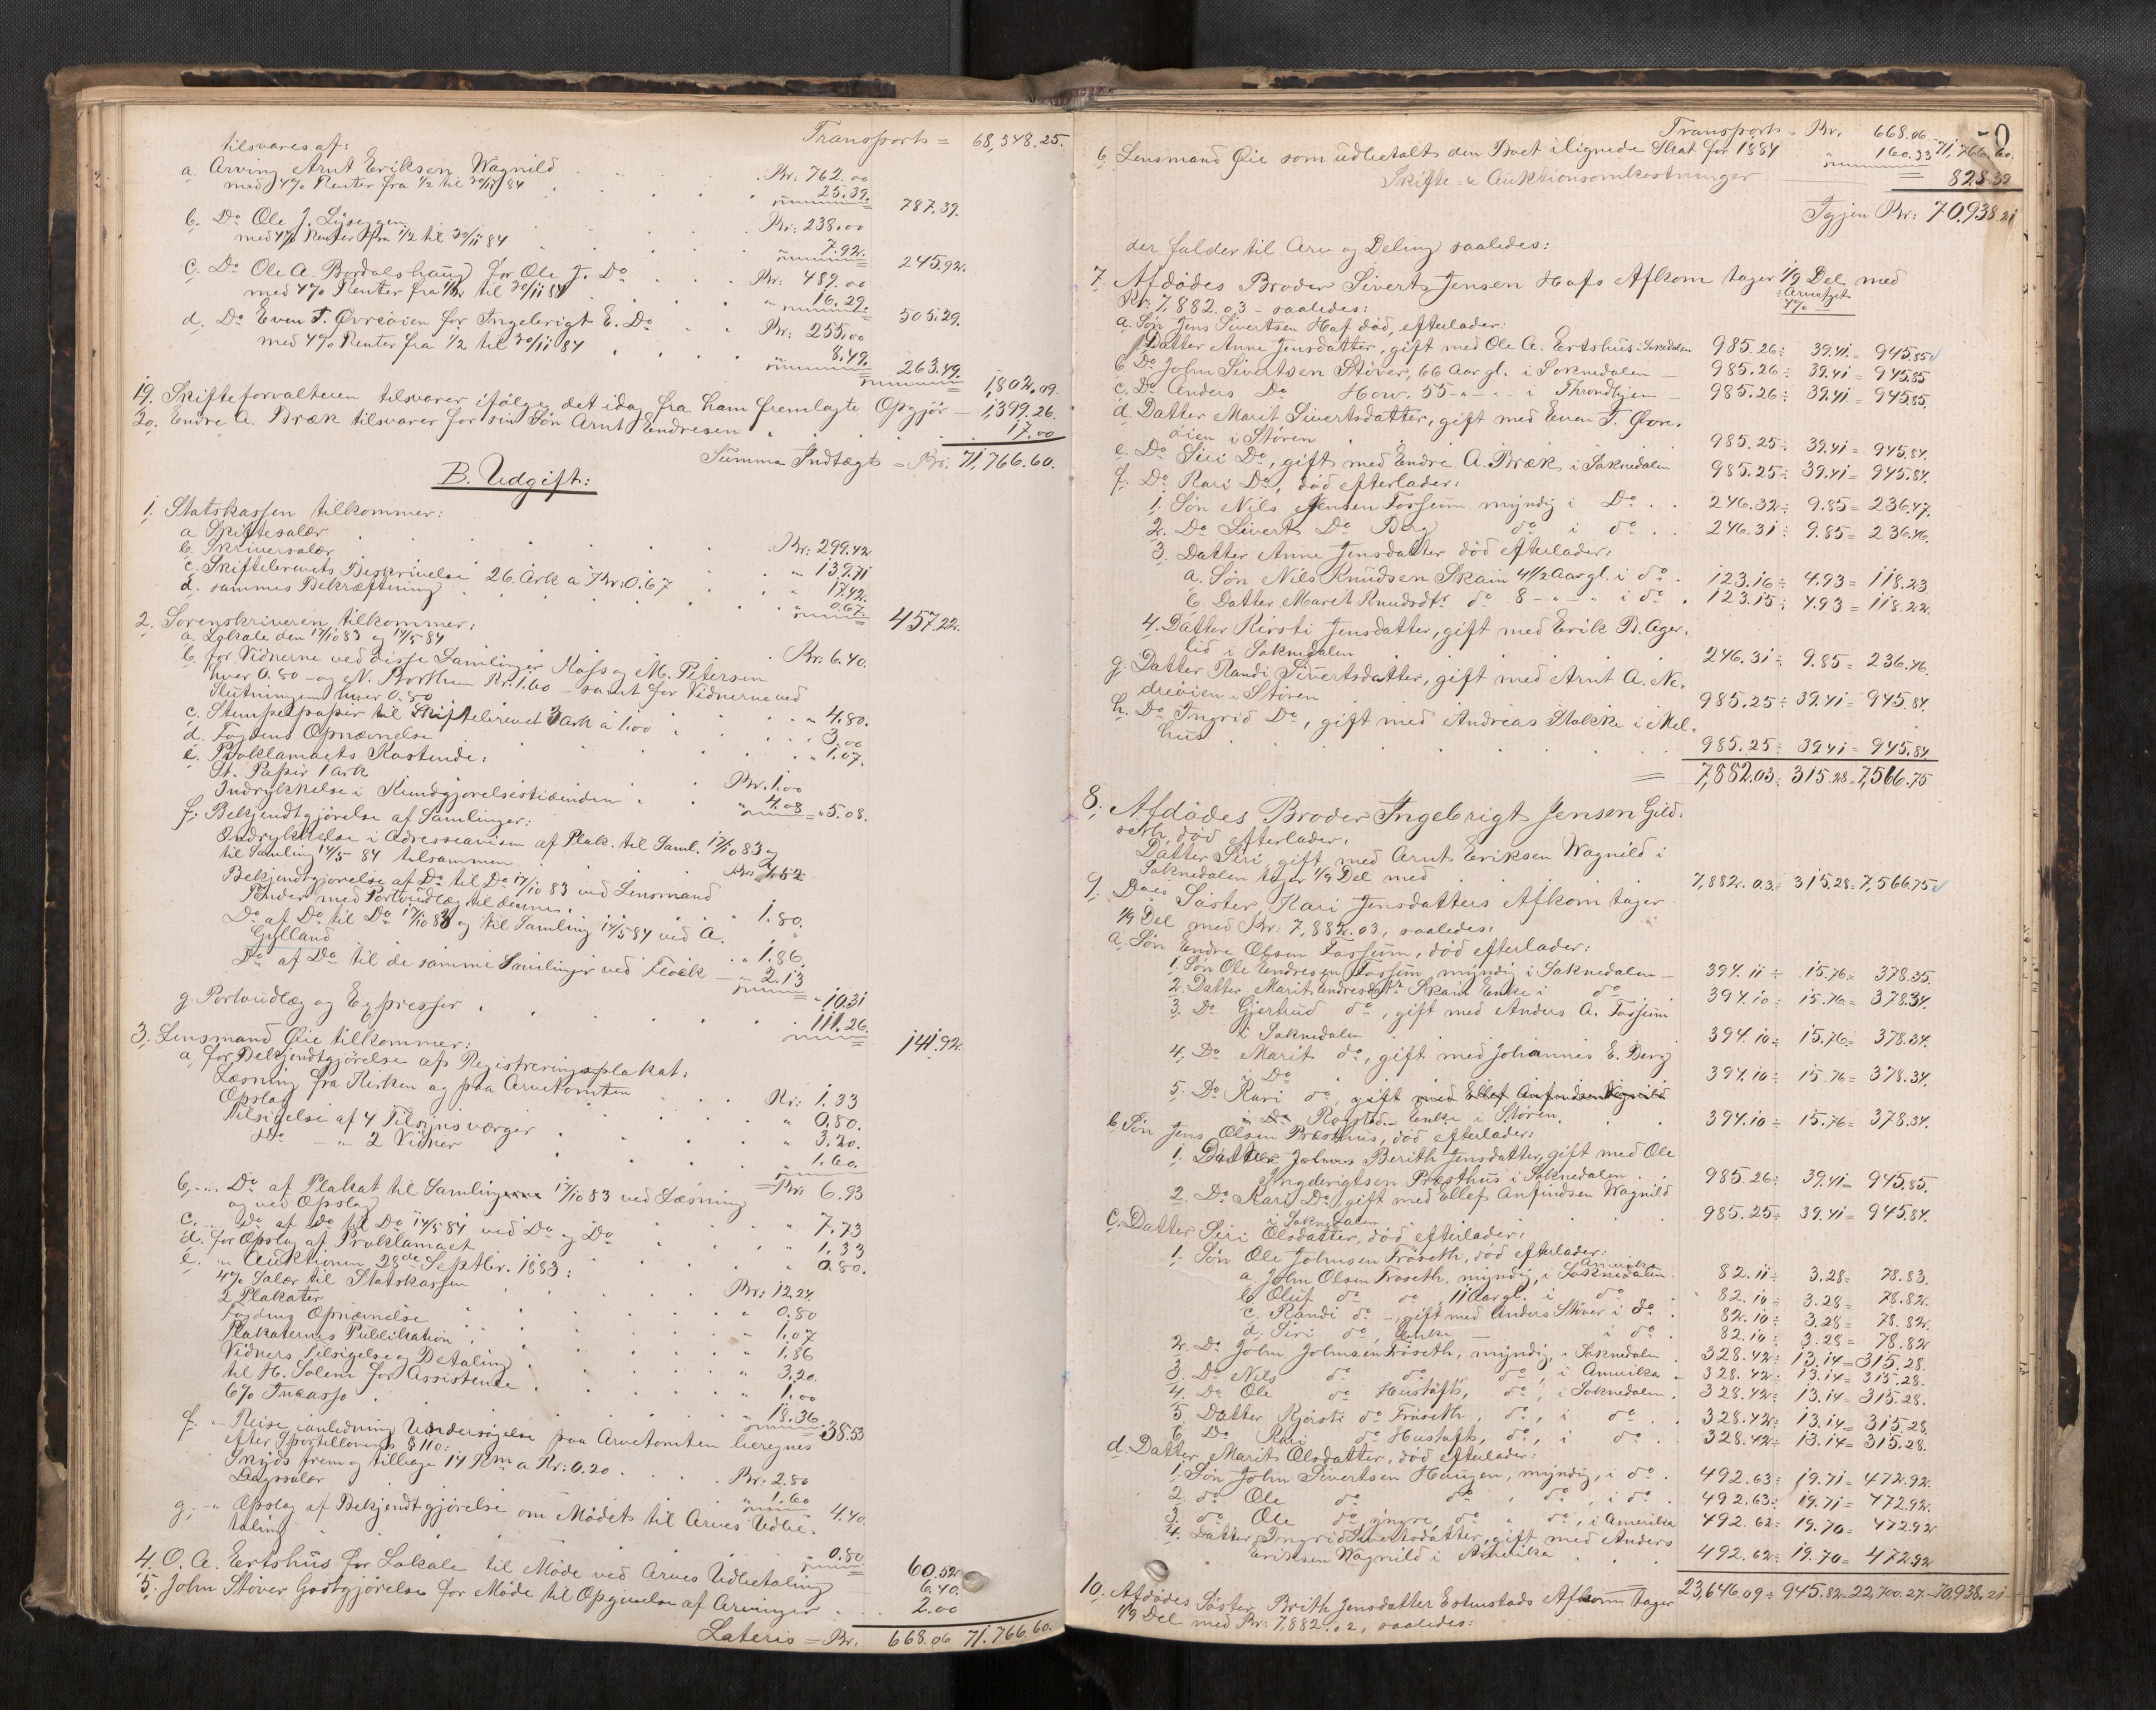 Transport = 68,548.25.
tilsvares af:
a. Arving Arnt Eriksen Wagnild . Kr: 762.00
med 4% Renter fra 1/2 til 30/11 84 . " 25.39. 787.39.
b. Do Ole J. . Kr: 238.00
med 4% Renter fra 1/2 til 30/11 84 . " 7.92. 245.92.
c. Do Ole A. Bordalshaug for Ole J. Do . Kr: 489.00
med 4% Renter fra 1/2 til 30/11 84 . " 16.29. 505.29.
d. Do Even T. Øvreøien for Ingebrigt E. Do . Kr: 255.00
med 4% Renter fra 1/2 til 30/11 84 . " 8.49. 263.49. 1,802.09.
19. Skifteforvalteren tilsvarer ifølge det idag fra ham fremlagte Opgjør — 1,399.26.
20. Endre A. Bræk tilsvarer for sin Søn Arnt Endresen . 17.00
Summa Indtægt = Kr. 71,766.60.
B. Udgift:
1. Statskassen tilkommer:
a. Skiftesalær . Kr: 299.42
b. Skriversalær . " 139.71
c. Skiftebrevets Beskrivelse 26 Ark a Kr: 0.67 . " 17.42.
d. sammes Bekræftning . " 0.67. 457.22.
2. Sorenskriveren tilkommer:
a. Lokale den 17/10 83 og 14/5 84 . Kr: 6.40.
b. for Vidnerne ved disse Samlinger Moss og M. Petersen
hver 0.80 - og N. Borthen Kr. 1.60 - samt for Vidnerne ved
Slutningen hver 0.80 . " 4.80.
c. Stempelpapir til Skiftebrevet 3 Ark a 1.00 . " 3.00
d. Fogdens Opnævnelse . " 1.07.
e. Proklamaets Kostende:
St. Papir 1 Ark Kr. 1.00
Indrykkelse i Kundgjørelsestidenden . " 4.08 = " 5.08.
f. Bekjendtgjørelse af Samlinger:
Indrykkelse i Adresseavisen af Plak. til Saml. 17/10 83 og
til Samling 14/5 84 tilsammen . Kr. 4.52
Bekjendtgjørelse af Do til Do 17/10 83 ved Lensmand
med Portoudlæg til denne . " 1.80.
Do af Do til Do 17/10 83 og til Samling 14/5 84 ved A.
Gylland . " 1.86.
Do af Do til de samme Samlinger ved — " 2.13 = " 10.31
g. Portoudlæg og Expresser . 111.26. 141.92.
3. Lensmand Øie tilkommer:
a. for Bekjendtgjørelse af Registreringsplakat:
Læsning fra Kirken og paa Arvetomten . Kr: 1.33
Opslag . " 0.80.
Tilsigelse af 4 Tilsynsværger . " 3.20.
Do — " 2 Vidner . " 1.60.
= Kr. 6.93
b. — " Do af Plakat til Samlingerne 17/10 83 ved Læsning
og ved Opslag . " 7.73
c. — Do af Do til Do 14/5 84 ved Do og Do . " 1.33
d. for Opslag af Proklamaet . " 0.80.
e. " Auktionen 28de Septbr. 1883:
4% Salær til Statskassen . Kr: 12.24.
2 Plakater . " 0.80
Fogdens Opnævnelse . " 1.07
Plakaternes Publikation . " 1.86
Vidners Tilsigelse og Betaling . " 3.20.
til H. Solem for Assistence . " 1.00
6% Incasso . " 18.36. 38.53
f. — Reise i anledning Undersøgelse paa Arvetomten beregnes
efter Sportellovens § 110:
Skyds frem og tilbage 14 Km a Kr: 0.20 . Kr: 2.80
Dagssalær . " 1.60 4.40.
g. — " Opslag af Bekjendtgjørelse om Mødet til Arves Udbe-
taling . " 0.80 60.52
4. O. A. Ertshus for Lokale til Møde ved Arves Udbetaling 6.40.
5. John Støver Godtgjørelse for Møde til Opgivelse af Arvinger . 2.00
Lateris = Kr. 668.06 71,766.60.
Transport = Kr. 668.06 - 71,766.60.
6. Lensmand Øie som udbetalt den Boet ilignede Skat for 1884 " 160.33
Skifte- & Auktionsomkostninger = 828.39
Igjen Kr: 70,938.21
der falder til Arv og Deling saaledes:
7. Afdødes Broder Sivert Jensen Hofs Afkom tager 1/9 Del med
Kr: 7,882.03 - saaledes: ÷ Arveafgift 4%
a. Søn Jens Sivertsen Hof død, efterlader:
Datter Anne Jensdatter, gift med Ole A. Ertshus i Soknedalen 985.26 ÷ 39.41 = 945.85
b. Do John Sivertsen Støver, 66 Aar gl. i Soknedalen — 985.26 ÷ 39.41 = 945.85
c. Do Anders Do How, 55 - " - " i Throndhjem — 985.26 ÷ 39.41 = 945.85.
d. Datter Marit Sivertsdatter, gift med Even T. Øvre-
øien i Støren . 985.25 ÷ 39.41 = 945.84.
e. Do Siri Do, gift med Endre A. Bræk i Soknedalen 985.25 ÷ 39.41 = 945.84.
f. Do Kari Do, død efterlader:
1. Søn Nils Jensen Fossum myndig i Do . . 246.32 ÷ 9.85 = 236.47.
2. Do Sivert Do Berg do i do . . 246.31 ÷ 9.85 = 236.46.
3. Datter Anne Jensdatter død efterlader:
a. Søn Nils Knudsen Skain 4 1/2 Aar gl. i do . 123.16 ÷ 4.93 = 118.23
b. Datter Marit Knudsdtr do 8 - " - " i do . 123.15 ÷ 4.93 = 118.22.
4. Datter Kirsti Jensdatter, gift med Erik B. Ager-
lid i Soknedalen . 246.31 ÷ 9.85 = 236.46.
g. Datter Randi Sivertsdatter, gift med Arnt A. Ne-
dreøien i Støren . 985.25 ÷ 39.41 = 945.84.
h. Do Ingrid Do, gift med Andreas Stokke i Mel-
hus . 985.25 ÷ 39.41 = 945.84
= 7,882.03 ÷ 315.28 = 7,566.75
8. Afdødes Broder Ingebrigt Jensen Gild-
seth, død efterlader:
Datter Siri gift med Arnt Eriksen Wagnild i
Soknedalen tager 1/9 Del med 7,882.03 ÷ 315.28 = 7,566.75
9. Does Søster Kari Jensdatters Afkom tager
1/9 Del med Kr: 7,882.03, saaledes:
a. Søn Endre Olsen Fossum, død efterlader:
1. Søn Ole Endresen Fossum, myndig i Soknedalen — 394.11 ÷ 15.76 = 378.35.
2. Datter Marit Endresdtr Skain Enke i do . 394.10 ÷ 15.76 = 378.34.
3. Do Gjertrud do, gift med Anders A. Fossum
i Soknedalen . 394.10 ÷ 15.76 = 378.34.
4. Do Marit do, gift med Johannes E. Berg
i Do . 394.10 ÷ 15.76 = 378.34.
5. Do Kari do, gift med Ellef Anfindsen Wagnild
i Do Rogstad - Enke i Støren . 394.10 ÷ 15.76 = 378.34.
b. Søn Jens Olsen Præsthus, død efterlader:
1. Datter Berith Jensdatter, gift med Ole
Ingebrigtsen Præsthus i Soknedalen . 985.26 ÷ 39.41 = 945.85.
2. Do Kari Do, gift med Ellef Anfindsen Wagnild
i Soknedalen . 985.25 ÷ 39.41 = 945.84.
c. Datter Siri Olsdatter, død efterlader:
1. Søn Ole Johnsen Frøseth, død efterlader:
a. John Olsen Frøseth, myndig, i Soknedalen Amerika . 82.11 ÷ 3.28 = 78.83.
b. Oluf do do 11 Aar gl. i do . 82.10 ÷ 3.28 = 78.82.
c. Randi do —, gift med Anders Støver i do . 82.10 ÷ 3.28 = 78.82.
d. Siri do, Enke — i do . 82.10 ÷ 3.28 = 78.82
2. Do John Johnsen Frøseth, myndig, i Soknedalen . 328.42 ÷ 13.14 = 315.28.
3. Do Nils do do do, i Amerika — 328.42 ÷ 13.14 = 315.28.
4. Do Ole do Hustøft, do, i Soknedalen . 328.42 ÷ 13.14 = 315.28.
5. Datter Kjersti do Frøseth, do, i do . . 328.42 ÷ 13.14 = 315.28.
6. Do Kari do Hustøft, do, i do . . 328.42 ÷ 13.14 = 315.28.
d. Datter Marit Olsdatter, død efterlader:
1. Søn John Sivertsen Haugen, myndig, i do . 492.63 ÷ 19.71 = 472.92.
2. do Ole do do, do, i do . 492.63 ÷ 19.71 = 472.92.
3. do Ole do yngre, do " do, i Amerika 492.62 ÷ 19.70 = 472.92
4. Datter Ingrid Sivertsdatter, gift med Anders
Eriksen Wagnild i Amerika . 492.62 ÷ 19.70 = 472.92
23,646.09 ÷ 945.82 = 22,700.27. - 70,938.21
10. Afdødes Søster Brith Jensdatter Estenstads Afkom tager
1/9 Del med Kr: 7,882.02, saaledes: